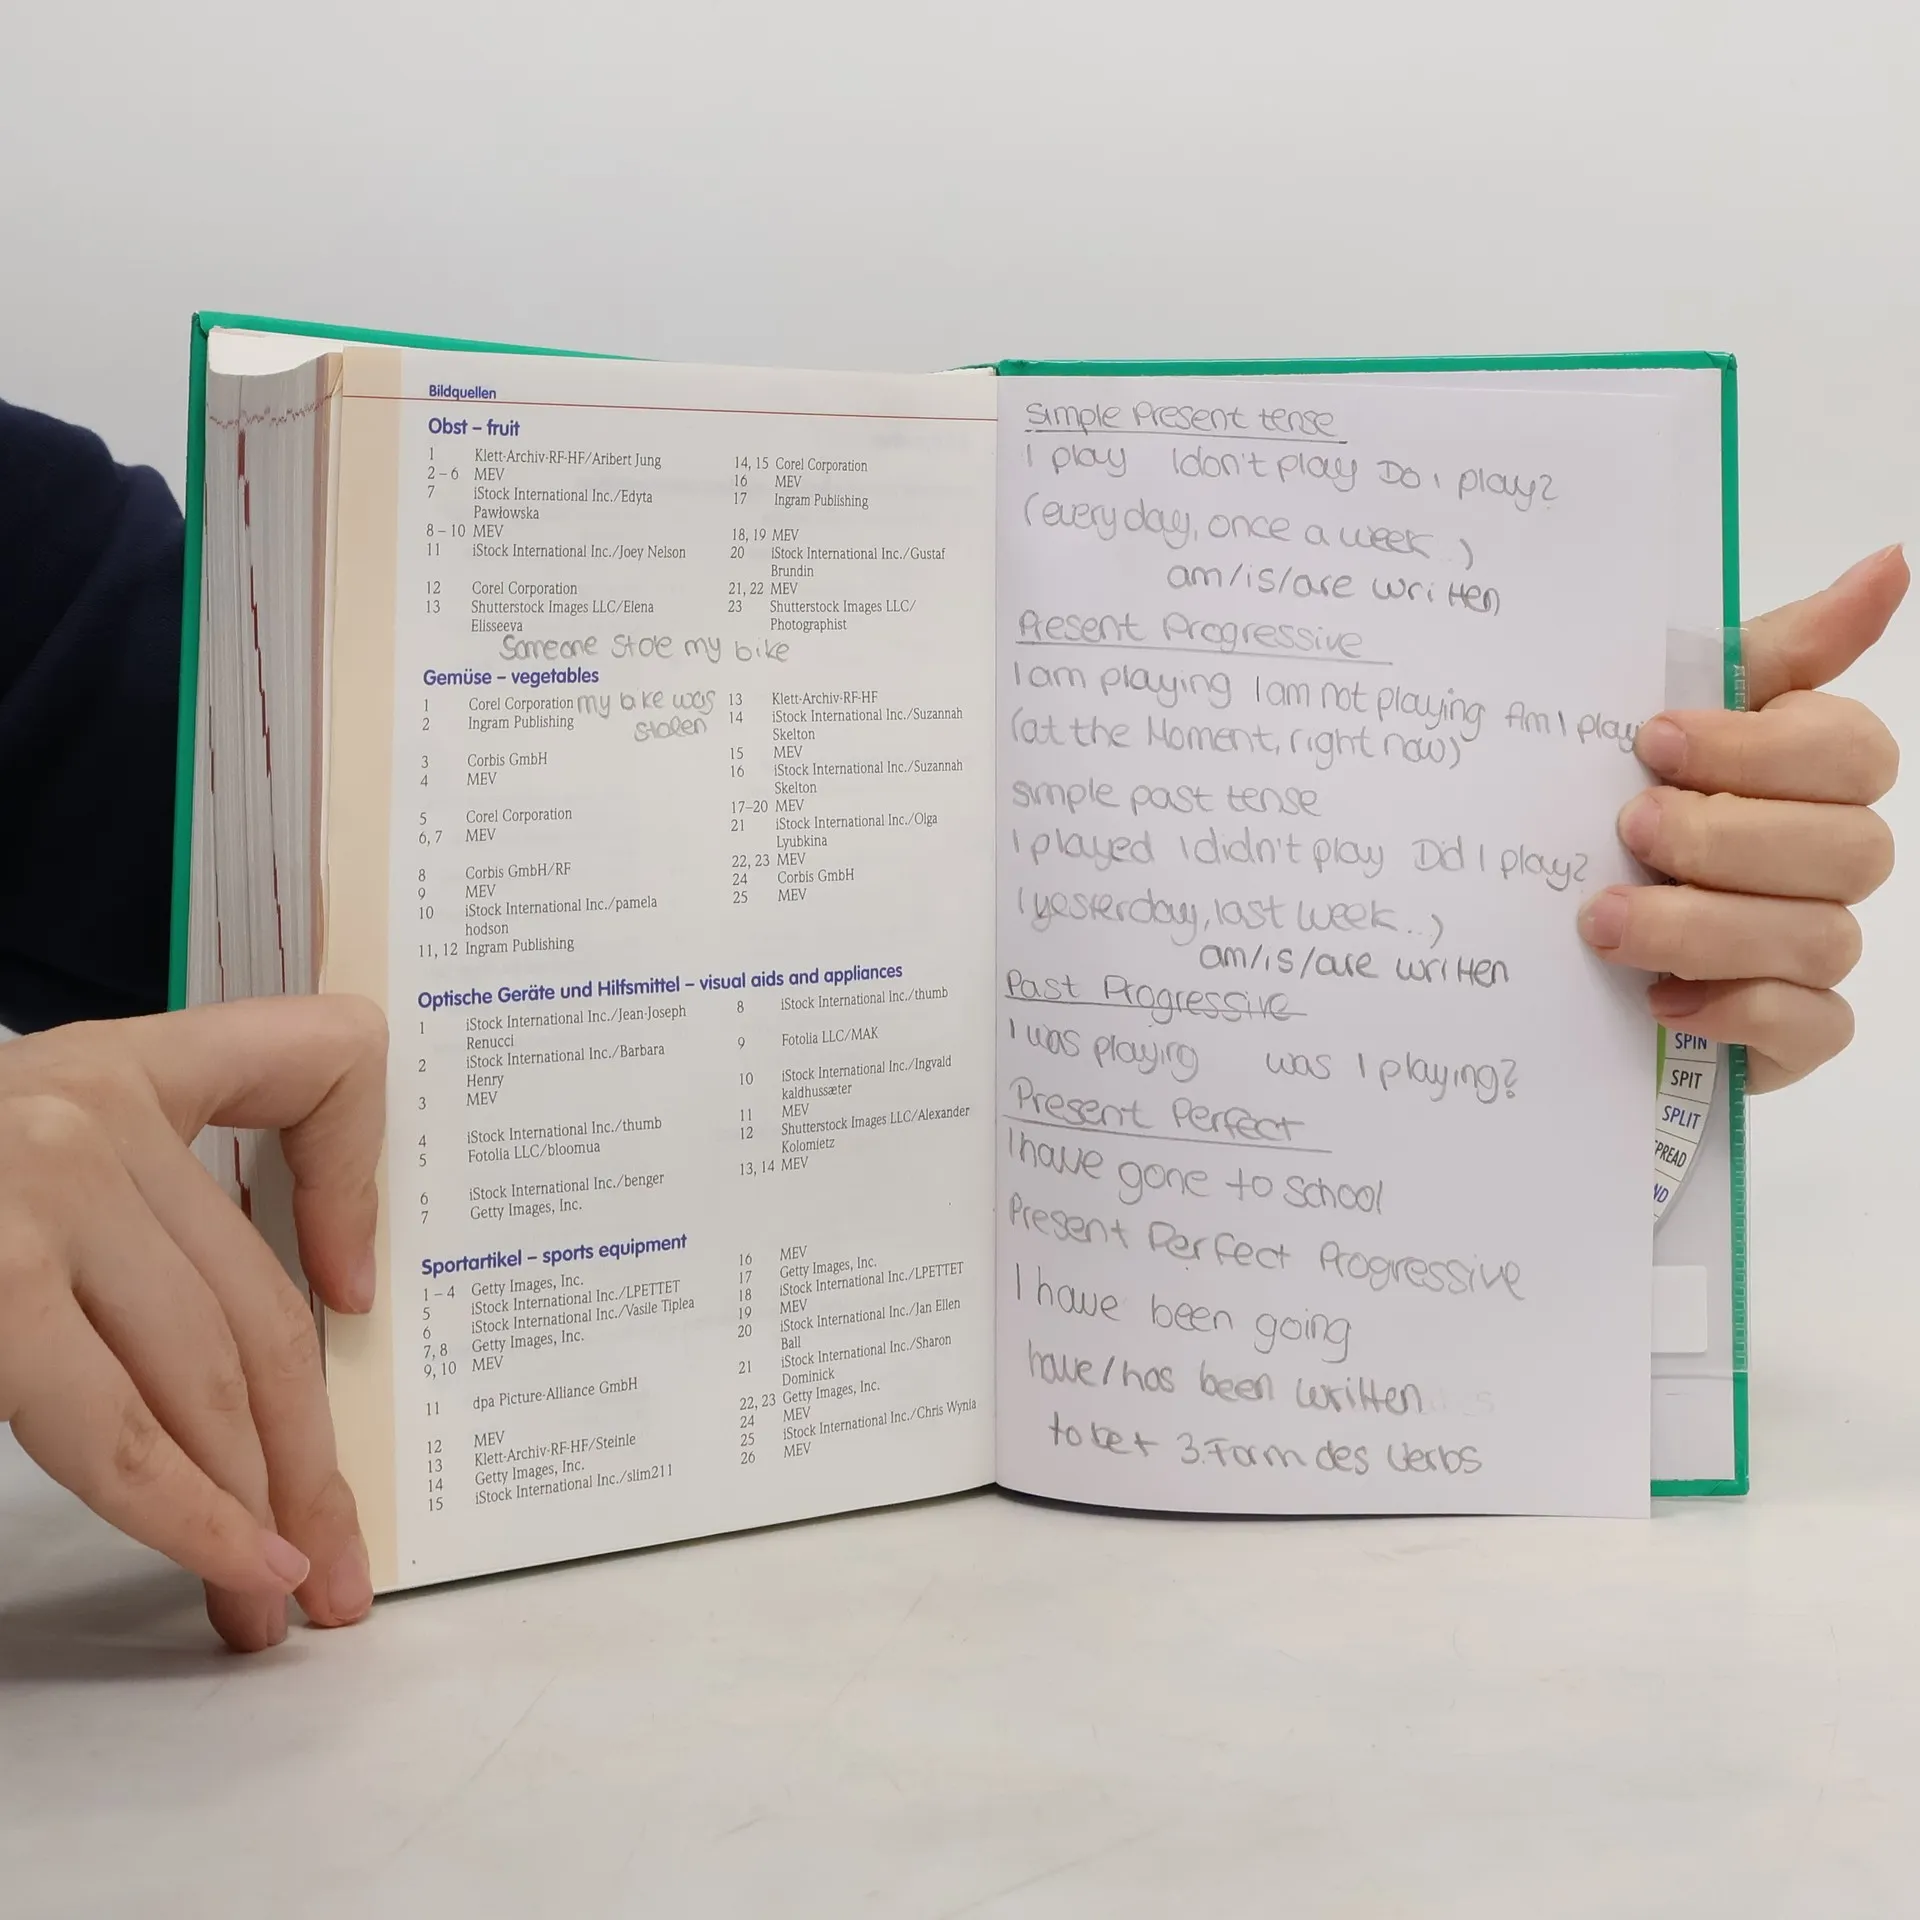 Bildquellen
Obst – fruit
1 Klett-Archiv-RF-HF/Aribert Jung
2 – 6 MEV
7 iStock International Inc./Edyta
Pawłowska
8 – 10 MEV
11 iStock International Inc./Joey Nelson
12 Corel Corporation
13 Shutterstock Images LLC/Elena
Elisseeva
14, 15 Corel Corporation
16 MEV
17 Ingram Publishing
18, 19 MEV
20 iStock International Inc./Gustaf
Brundin
21, 22 MEV
23 Shutterstock Images LLC/
Photographist
Someone stole my bike
Gemüse – vegetables
1 Corel Corporation
2 Ingram Publishing
my bike was
stolen
3 Corbis GmbH
4 MEV
5 Corel Corporation
6, 7 MEV
8 Corbis GmbH/RF
9 MEV
10 iStock International Inc./pamela
hodson
11, 12 Ingram Publishing
13 Klett-Archiv-RF-HF
14 iStock International Inc./Suzannah
Skelton
15 MEV
16 iStock International Inc./Suzannah
Skelton
17–20 MEV
21 iStock International Inc./Olga
Lyubkina
22, 23 MEV
24 Corbis GmbH
25 MEV
Optische Geräte und Hilfsmittel – visual aids and appliances
1 iStock International Inc./Jean-Joseph
Renucci
2 iStock International Inc./Barbara
Henry
3 MEV
4 iStock International Inc./thumb
5 Fotolia LLC/bloomua
6 iStock International Inc./benger
7 Getty Images, Inc.
8 iStock International Inc./thumb
9 Fotolia LLC/MAK
10 iStock International Inc./Ingvald
kaldhussæter
11 MEV
12 Shutterstock Images LLC/Alexander
Kolomietz
13, 14 MEV
Sportartikel – sports equipment
1 – 4 Getty Images, Inc.
5 iStock International Inc./LPETTET
6 iStock International Inc./Vasile Tiplea
7, 8 Getty Images, Inc.
9, 10 MEV
11 dpa Picture-Alliance GmbH
12 MEV
13 Klett-Archiv-RF-HF/Steinle
14 Getty Images, Inc.
15 iStock International Inc./slim211
16 MEV
17 Getty Images, Inc.
18 iStock International Inc./LPETTET
19 MEV
20 iStock International Inc./Jan Ellen
Ball
21 iStock International Inc./Sharon
Dominick
22, 23 Getty Images, Inc.
24 MEV
25 iStock International Inc./Chris Wynia
26 MEV
Simple Present tense
I play I don't play Do I play?
(every day, once a week..)
am/is/are written
Present Progressive
I am playing I am not playing Am I play
(at the Moment, right now)
simple past tense
I played I didn't play Did I play?
(yesterday, last week...)
am/is/are written
Past Progressive
I was playing was I playing?
Present Perfect
I have gone to school
Present Perfect Progressive
I have been going
have/has been written
to be + 3. Form des Verbs
SPIN
SPIT
SPLIT
PREAD
ND